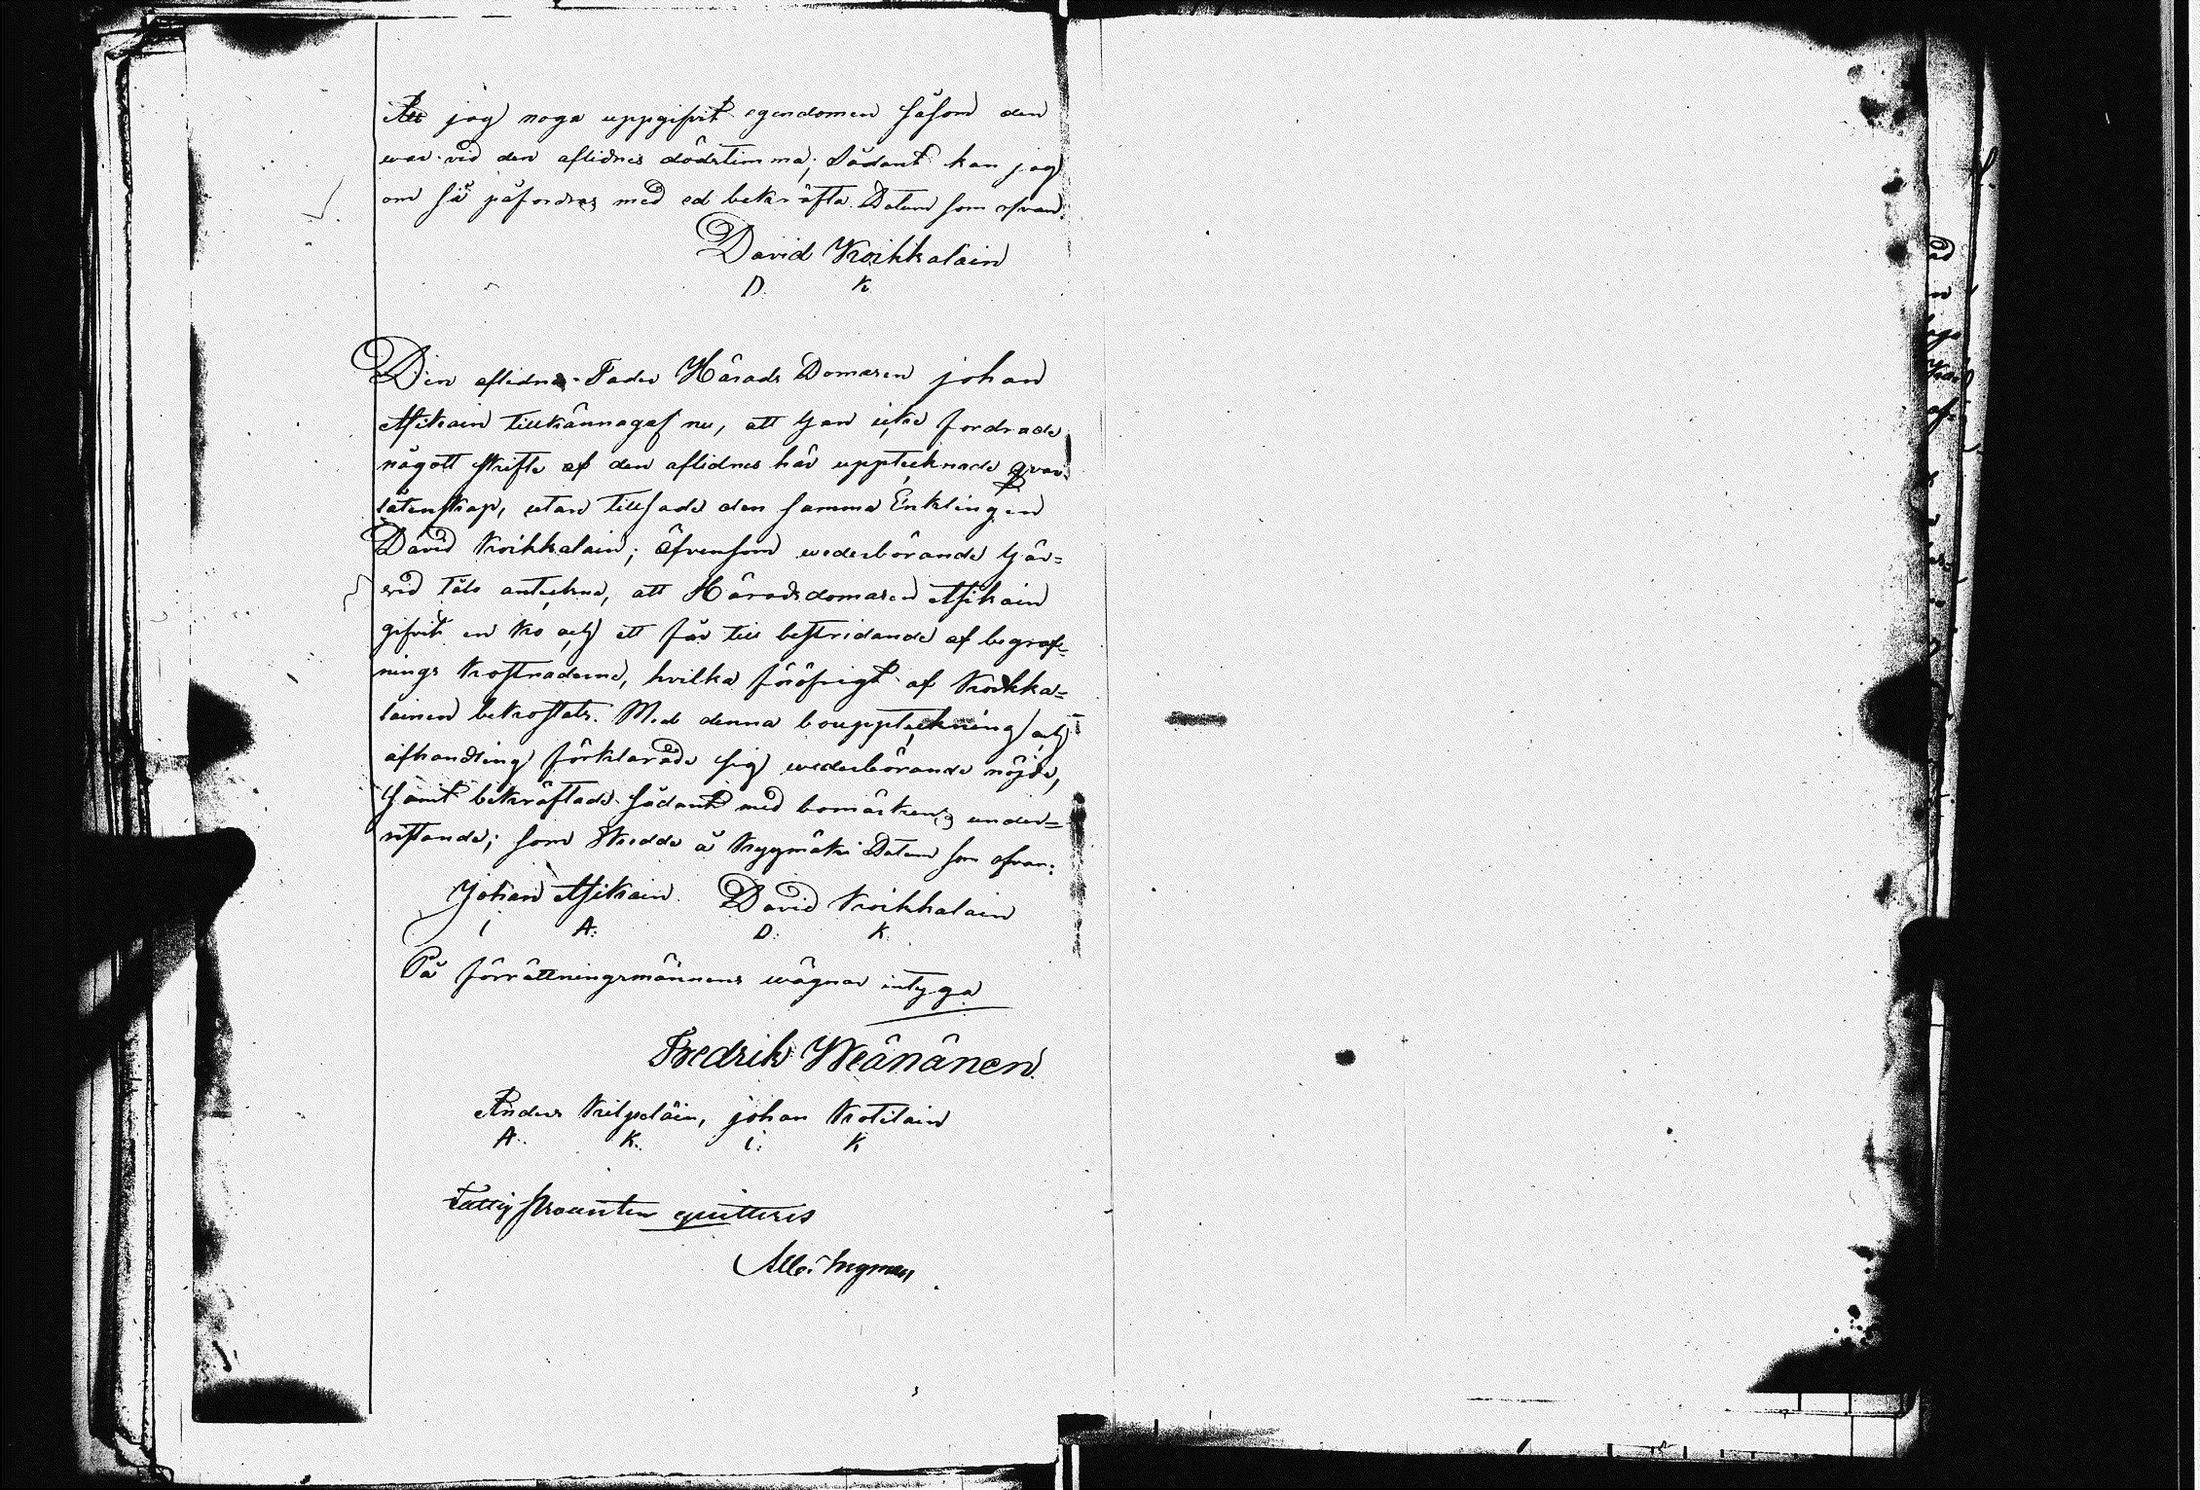 Att jag noga uppgifvit egendomen såsom den
war vid den aflidnes dödstimma; Sådant kan jag
om så påfordras med ed bekräfta Datum som ofvan.
David Koikkalain
D. K
Den aflidnes Fader Härads Domaren johan
Asikain tillkännagaf nu, att han icke fordrade
någott skifte af den aflidnes här upptecknade qvar
låtenskap, utan tillsade den samma Enklingen
David Koikkalain; äfvensom wederbörande här=
vid läto anteckna, att Häradsdomaren Asikain
gifvit en ko och ett får till bestridande af begraf=
nings kostnaderna, hvilka föröfrigt af Koikka=
lainen bekostats. Med denna bouppteckning och
afhandling förklarade sig wederbörande nöjde,
samt bekräftade sådant med bomärkens under=
ristande; som skedde å Kyymäki Datum som ofvan:
Johan Asikain. David Koikkalain
i A: D: K.
På förrättningsmännens wägnar intyga
Fredrik Weänänen.
Anders Kilpeläin, johan Kotilain
A. K. i: K
Fattig procenten quitteras
Ingman